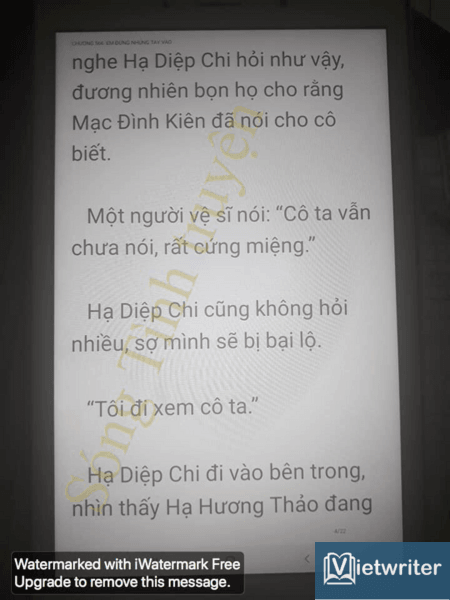 nghe Hạ Diệp Chi hỏi như vậy,
đương nhiên bọn họ cho rằng
Mạc Đình Kiên đã nói cho cô
biết.
Một người vệ sĩ nói: “Cô ta vẫn
chưa nói, rất cứng miệng.”
Hạ Diệp Chi cũng không hỏi
nhiều, sợ mình sẽ bị bại lộ.
“Tôi đi xem cô ta.”
Hạ Diệp Chi đi vào bên trong,
nhìn thấy Hạ Hương Thảo đang
Sóng Tình truyện
Watermarked with iWatermark Free
Upgrade to remove this message.
Vietwriter